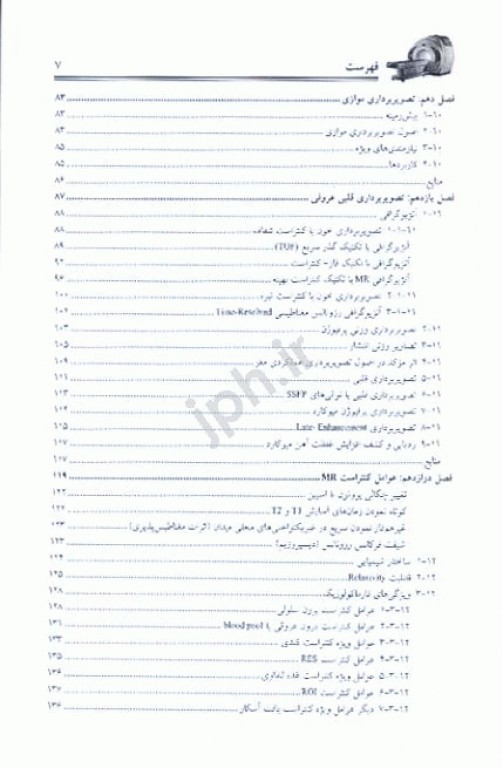 فهرست ۷
فصل دهم: تصویربرداری موازی ۸۳
۱-۱۰ پیش‌زمینه ۸۳
۲-۱۰ اصول تصویربرداری موازی ۸۴
۳-۱۰ نیازمندی‌های ویژه ۸۵
۴-۱۰ کاربردها ۸۵
منابع ۸۶
فصل یازدهم: تصویربرداری قلبی عروقی ۸۷
۱-۱۱ آنژیوگرافی ۸۸
تصویربرداری خون با کنتراست شفاف ۸۸
آنژیوگرافی با تکنیک گذر سریع (TOF) ۸۹
آنژیوگرافی با تکنیک فاز- کنتراست ۹۲
آنژیوگرافی MR با تکنیک کنتراست بهینه ۹۶
۲-۱-۱۱ تصویربرداری خون با کنتراست تیره ۱۰۰
۳-۱-۱۱ آنژیوگرافی رزونانس مغناطیسی Time-Resolved
۲-۱۱ تصویربرداری وزنی پرفیوژن ۱۰۳
۳-۱۱ تصاویر وزنی انتشار ۱۰۵
۴-۱۱ اثر مؤکد در اصول تصویربرداری عملکردی مغز ۱۰۹
۵-۱۱ تصویربرداری قلبی
۶-۱۱ تصویربرداری قلبی با توالی‌های SSFP ۱۱۳
۷-۱۱ تصویربرداری پرفیوژن میوکارد
۸-۱۱ تصویربرداری Late- Enhancement
۹-۱۱ ردیابی و کشف افزایش غلظت آهن میوکارد ۱۱۷
منابع ۱۱۷
فصل دوازدهم: عوامل کنتراست MR ۱۱۹
تغییر چگالی پروتون یا اسپین ۱۲۲
کوتاه نمودن زمان‌های آسایش T1 و T2 ۱۲۲
غیرهم‌فاز نمودن سریع در غیریکنواختی‌های محلی میدان (اثرات مغناطیس‌پذیری) ۱۲۳
شیفت فرکانس رزونانس (دیسپروزیم) ۱۲۳
۱-۱۲ ساختار شیمیایی ۱۲۴
۲-۱۲ قابلیت Relaxivity ۱۲۵
۳-۱۲ ویژگی‌های فارماکولوژیک ۱۲۸
۱-۳-۱۲ عوامل کنتراست برون سلولی ۱۲۸
۲-۳-۱۲ عوامل کنتراست درون عروقی یا blood pool ۱۳۱
۳-۳-۱۲ عوامل ویژه کنتراست کبدی ۱۳۳
۴-۳-۱۲ عوامل کنتراست RES ۱۳۵
۵-۳-۱۲ عوامل ویژه کنتراست غدد لنفاوی
۶-۳-۱۲ عوامل کنتراست ROI ۱۳۶
۷-۳-۱۲ دیگر عوامل ویژه کنتراست بافت آشکار ۱۳۶
jph.ir